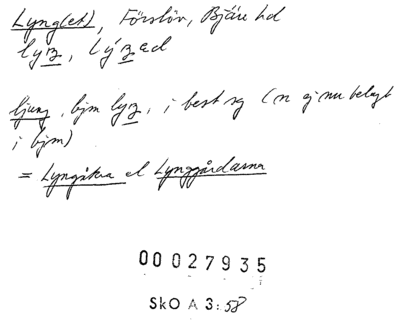 Lyng(et), Förslöv, Bjäre hd
lyɜ, lýɜad
ljung, bjm lyɜ, i best sg (n ej nu belagt
i bjm)
= Lyngåkra el Lynggårdarna
00027935
SkO A 3:58